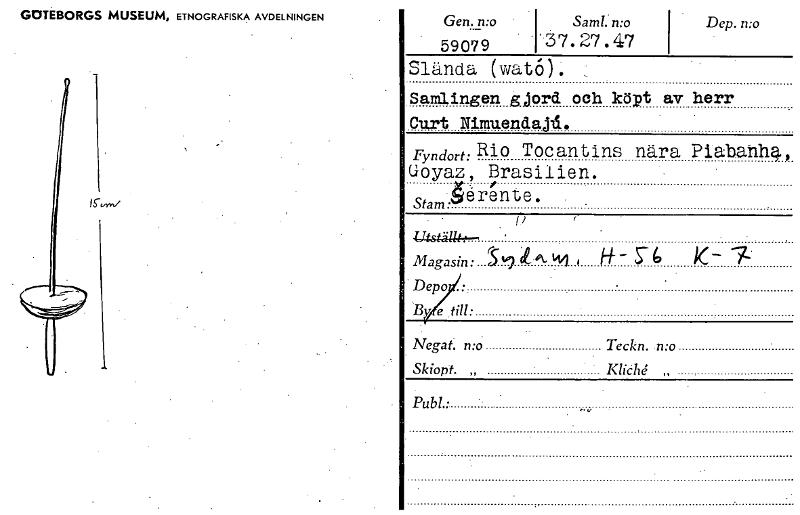 GÖTEBORGS MUSEUM, ETNOGRAFISKA AVDELNINGEN
15 cm
Gen. n:o Saml. n:o Dep. n:o
59079 37.27.47
Slända (wató).
Samlingen gjord och köpt av herr
Curt Nimuendajú.
Fyndort: Rio Tocantins nära Piabanha,
Goyaz, Brasilien.
Stam: Šerénte.
Utställt:
Magasin: Sydam. H-56 K-7
Depon.:
Byte till:
Negat. n:o Teckn. n:o
Skiopt. „ Kliché „
Publ.: